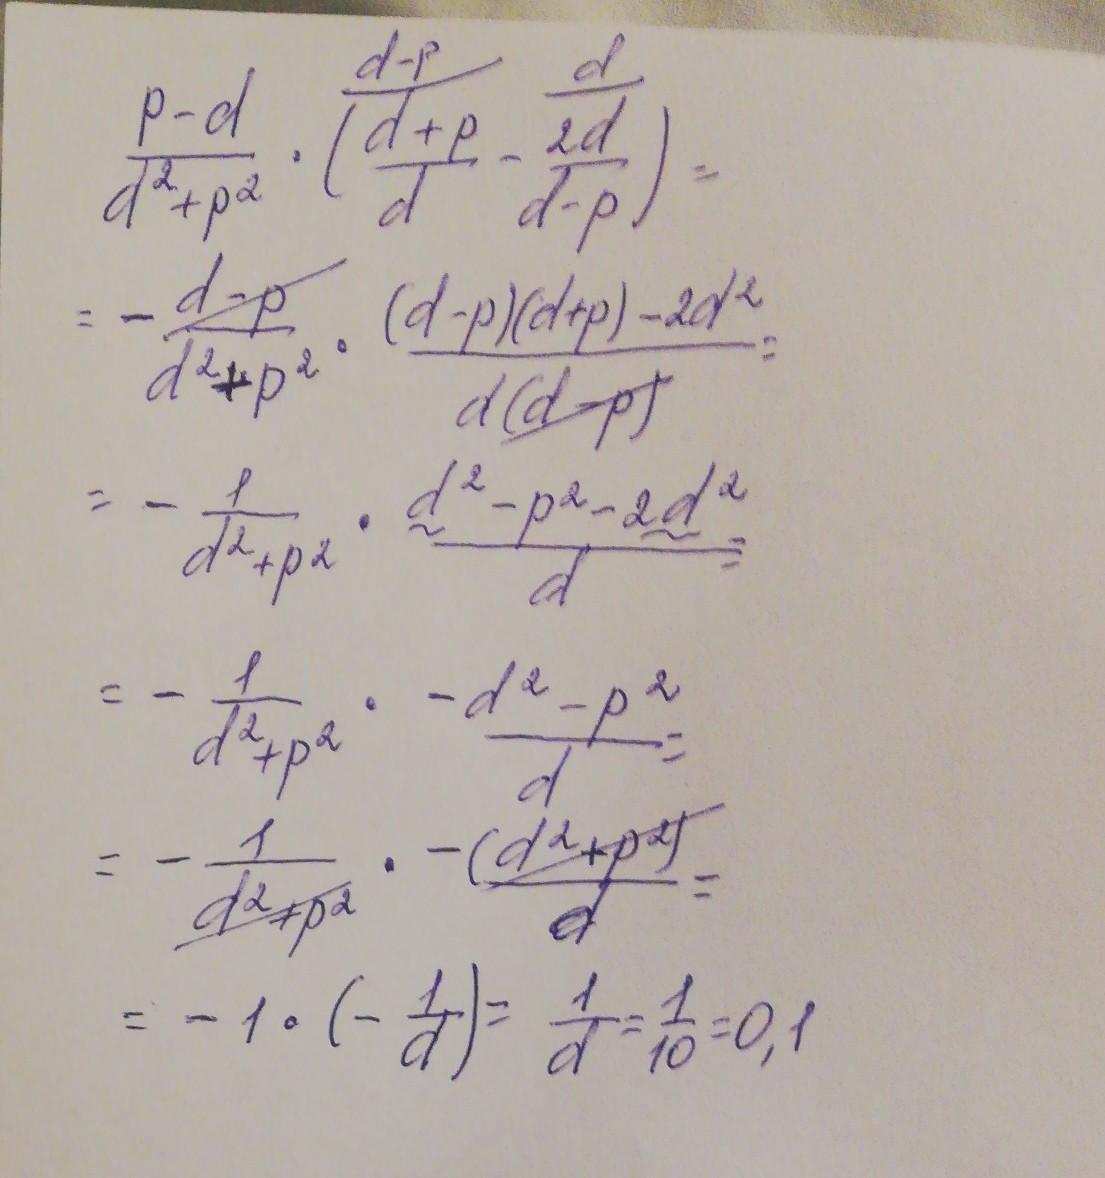 (p-d)/(d²+p²) · ((d+p)/d ^(d-p) - 2d/(d-p) ^(d)) =
= - (d-p)/(d²+p²) · ((d-p)(d+p) - 2d²)/(d(d-p)) =
= - 1/(d²+p²) · (d² - p² - 2d²)/d =
= - 1/(d²+p²) · (-d² - p²)/d =
= - 1/(d²+p²) · (-(d²+p²))/d =
= - 1 · (- 1/d) = 1/d = 1/10 = 0,1